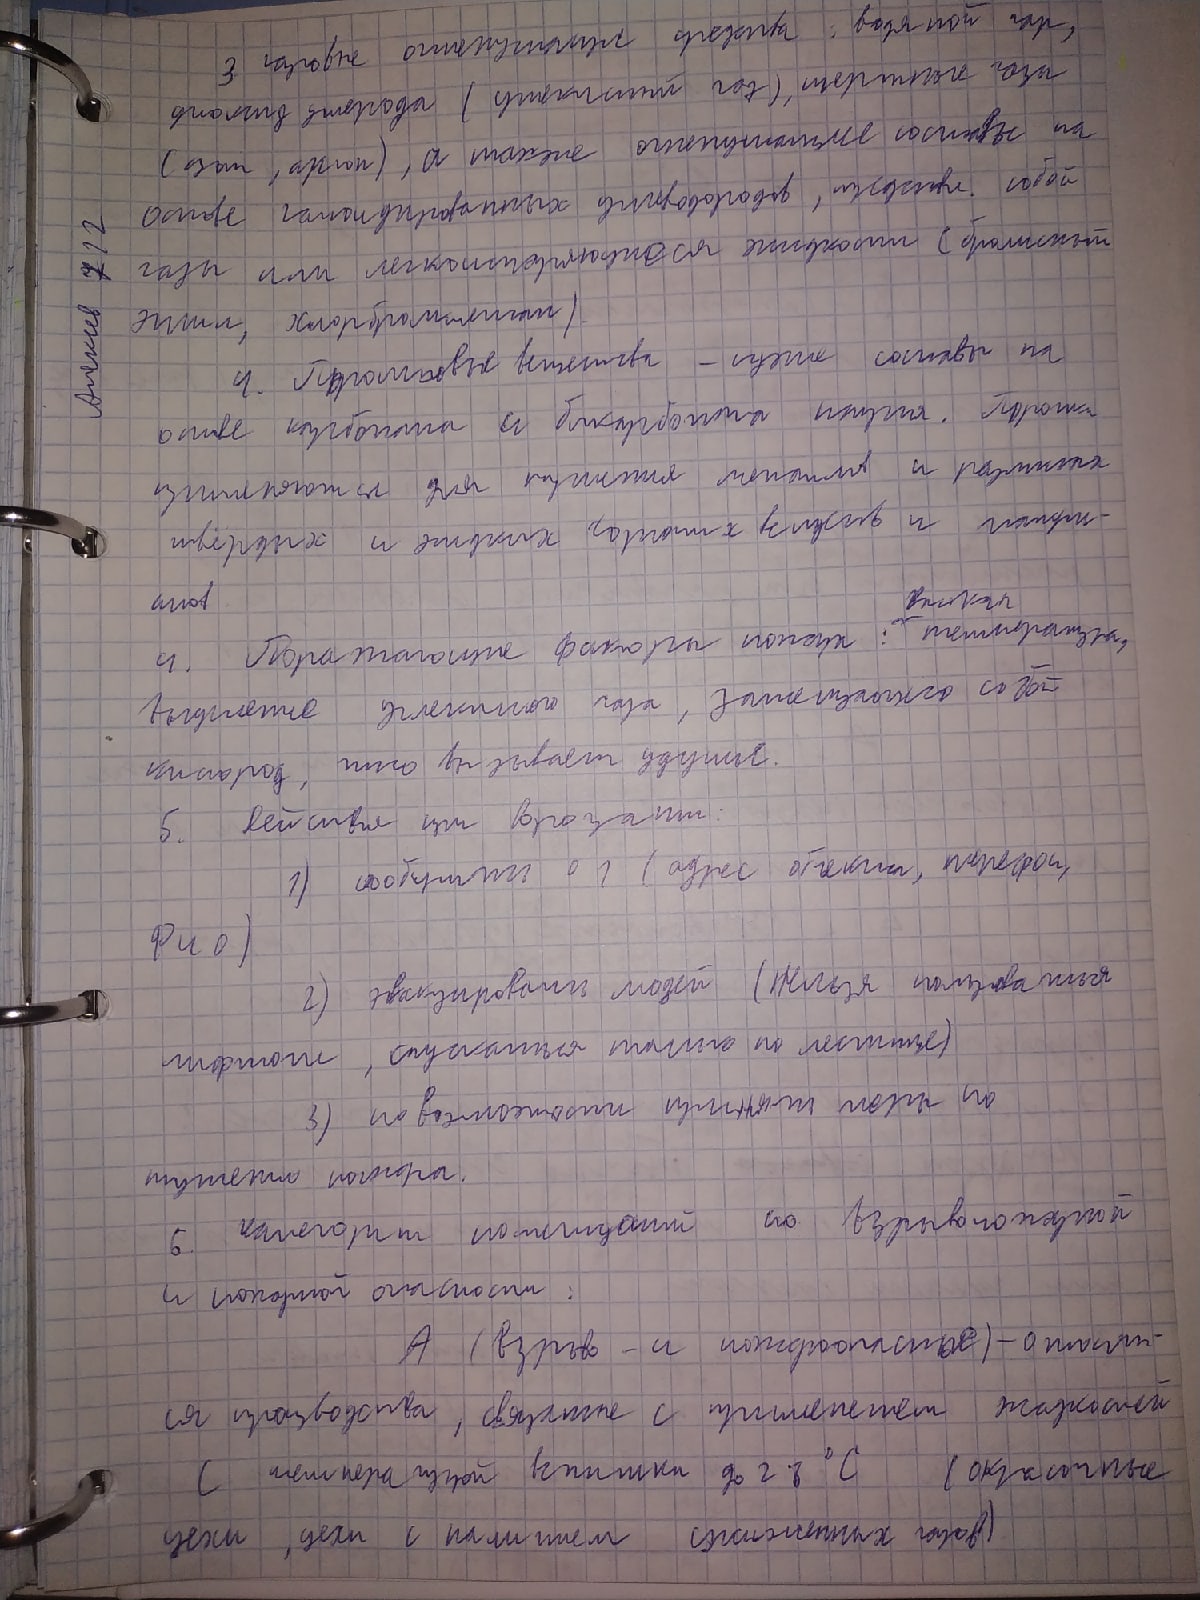 3. газовые огнетушащие средства: водяной пар,
диоксид углерода (углекислый газ), инертные газы
(азот, аргон), а также огнетушащие составы на
основе галоидированных углеводородов, представл. собой
газы или легкоиспаряющиеся жидкости (бромистый
этил, хлорбромметан)
4. Порошковые вещества – сухие составы на
основе карбоната и бикарбоната натрия. Порошки
применяются для тушения металлов и различных
твёрдых и жидких горючих веществ и матери-
алов
4. Поражающие факторы пожара: высокая температура,
выделение углекислого газа, замещающего собой
кислород, что вызывает удушье.
5. Действия при возгорании:
1) сообщить 01 (адрес объекта, телефон,
ФИО)
2) эвакуировать людей (Нельзя пользоваться
лифтом, спускаться только по лестнице)
3) по возможности принять меры по
тушению пожара.
6. Категории помещений по взрывопожарной
и пожарной опасности:
А (взрыво- и пожароопасные) – относят-
ся производства, связанные с применением жидкостей
с температурой вспышки до 28 °С (окрасочные
цехи, цехи с наличием сжиженных газов)
Алексеев 712